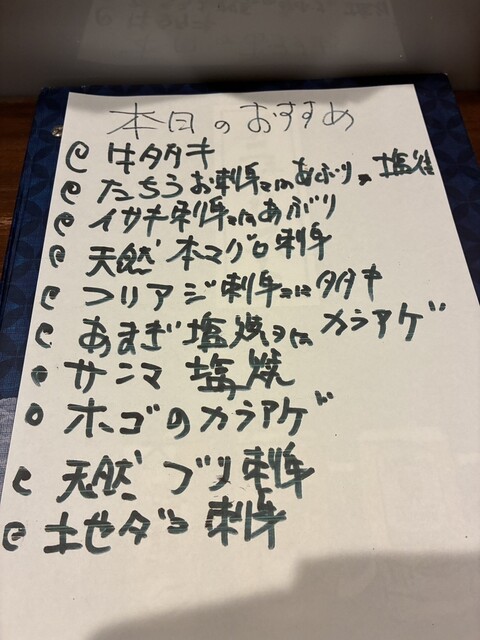 本日のおすすめ
牛タタキ
たちうお刺身又はあぶり又 塩焼
イサキ刺身又はあぶり
天然 本マグロ刺身
ツリアジ刺身又はタタキ
あまぎ塩焼又は カラアゲ
サンマ 塩焼
ホゴのカラアゲ
天然 ブリ刺身
土世ダコ 刺身